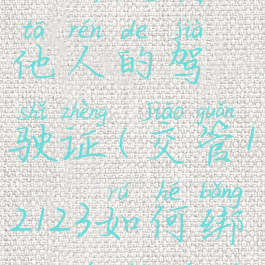 tā rén de jià
他人的驾
shǐ zhèng jiāo guǎn
驶证(交管1
rú hé bǎng
2123如何绑